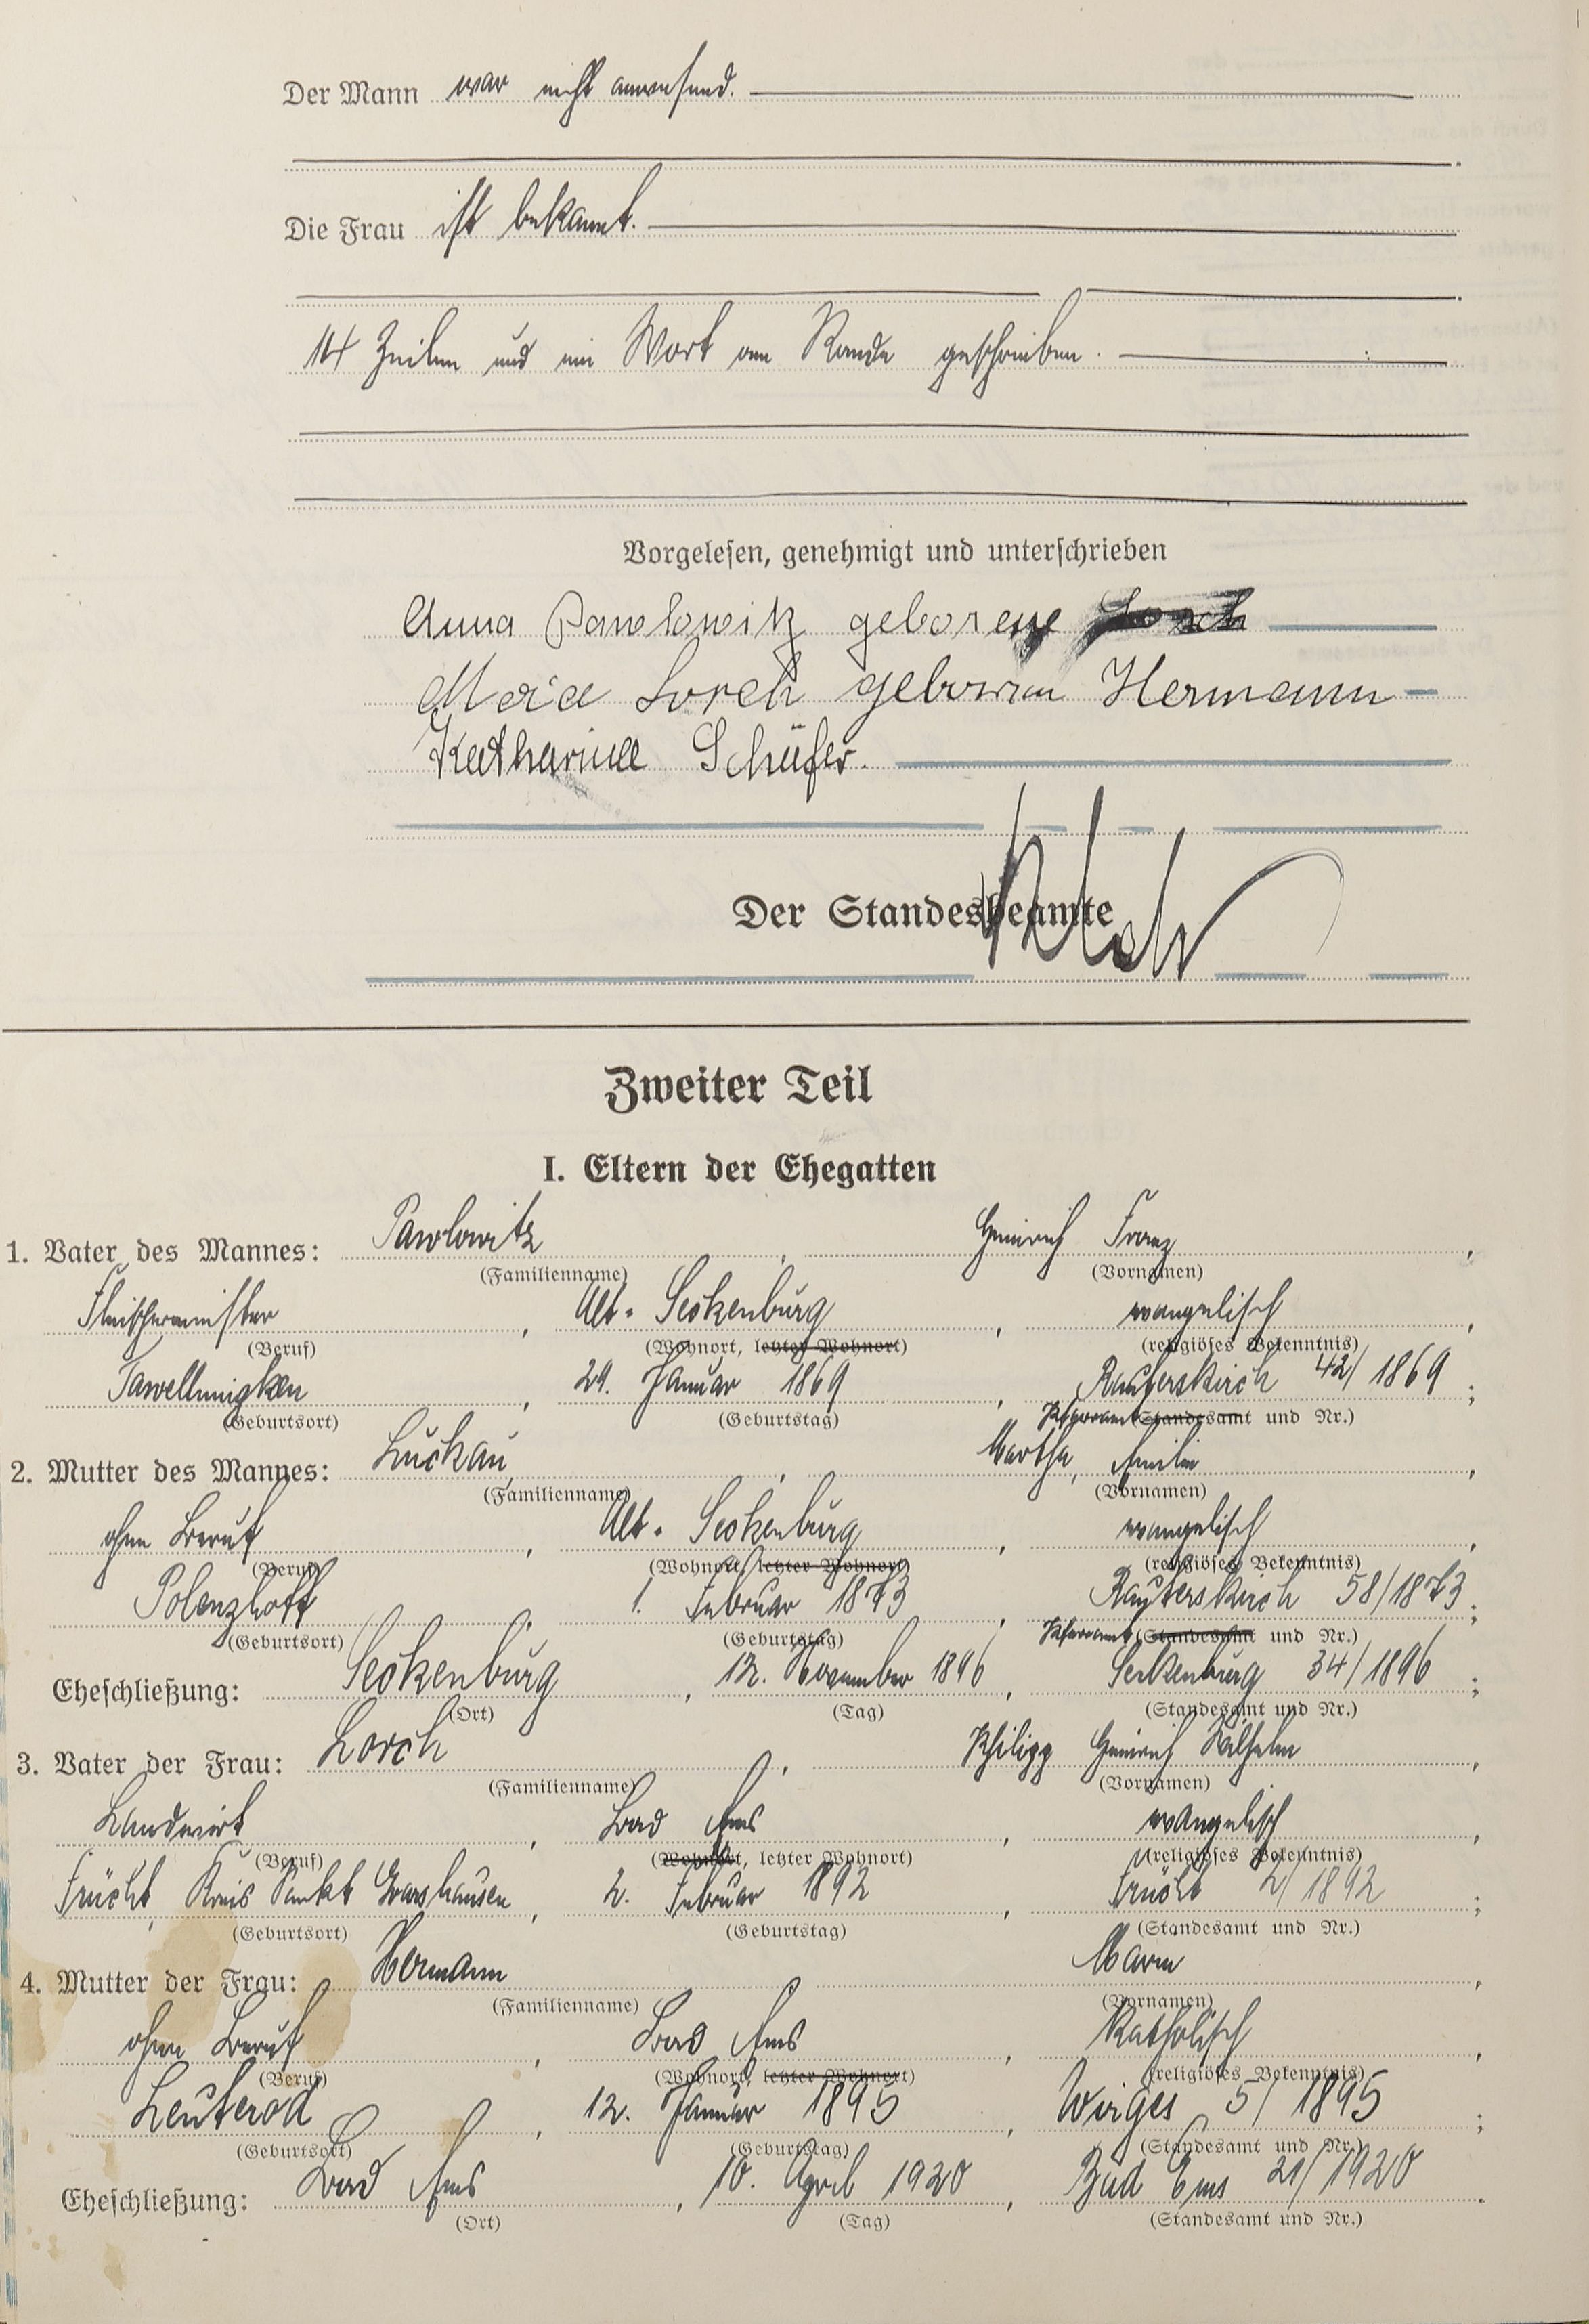 Der Mann war nicht anwesend.
Die Frau ist bekannt.
14 Zeilen und ein Wort am Rande geschrieben.
Vorgelesen, genehmigt und unterschrieben
Anna Pawlowitz geborene Lorch
Maria Lorch geboren Hermann
Katharina Schäfer.
Der Standesbeamte
Zweiter Teil
I. Eltern der Ehegatten
1. Vater des Mannes: Pawlowitz, Heinrich Franz,
(Familienname) (Vornamen)
Fleischermeister, Alt-Seckenburg, evangelisch,
(Beruf) (Wohnort, letzter Wohnort) (religiöses Bekenntnis)
Tawellningken, 29. Januar 1869, Rauterskirch 42/1869;
(Geburtsort) (Geburtstag) Pfarramt (Standesamt und Nr.)
2. Mutter des Mannes: Luckau, Martha, Emilie,
(Familienname) (Vornamen)
ohne Beruf, Alt-Seckenburg, evangelisch,
(Beruf) (Wohnort, letzter Wohnort) (religiöses Bekenntnis)
Polenzhoff, 1. Februar 1873, Rauterskirch 58/1873;
(Geburtsort) (Geburtstag) Pfarramt (Standesamt und Nr.)
Eheschließung: Seckenburg, 12. November 1896, Seckenburg 34/1896;
(Ort) (Tag) (Standesamt und Nr.)
3. Vater der Frau: Lorch, Philipp Heinrich Wilhelm,
(Familienname) (Vornamen)
Landwirt, Bad Ems, evangelisch,
(Beruf) (Wohnort, letzter Wohnort) (religiöses Bekenntnis)
Frücht, Kreis Sankt Goarshausen, 2. Februar 1892, Frücht 2/1892;
(Geburtsort) (Geburtstag) (Standesamt und Nr.)
4. Mutter der Frau: Hermann Maria,
(Familienname) (Vornamen)
ohne Beruf, Bad Ems, katholisch,
(Beruf) (Wohnort, letzter Wohnort) (religiöses Bekenntnis)
Leuterod, 12. Januar 1895, Wirges 5/1895;
(Geburtsort) (Geburtstag) (Standesamt und Nr.)
Eheschließung: Bad Ems, 10. April 1920, Bad Ems 21/1920.
(Ort) (Tag) (Standesamt und Nr.)